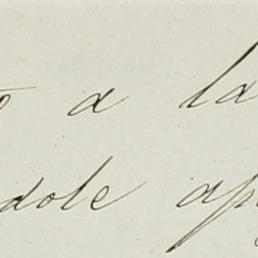 o a la
dole ap